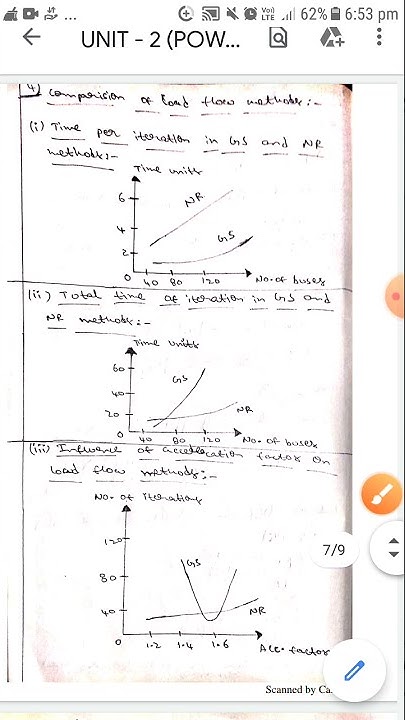 62% 6:53 pm
UNIT - 2 (POW...
4) Comparision of load flow methods:-
(i) Time per iteration in GS and NR
methods:-
Time units
6
4
2
0 40 80 120 No. of buses
NR
GS
(ii) Total time of iteration in GS and
NR methods:-
Time units
60
40
20
0 40 80 120 No. of buses
GS
NR
(iii) Influence of acceleration factor on
load flow methods:-
No. of iterations
120
80
40
0 1.2 1.4 1.6 Acc. factor
GS
NR
7/9
Scanned by Ca